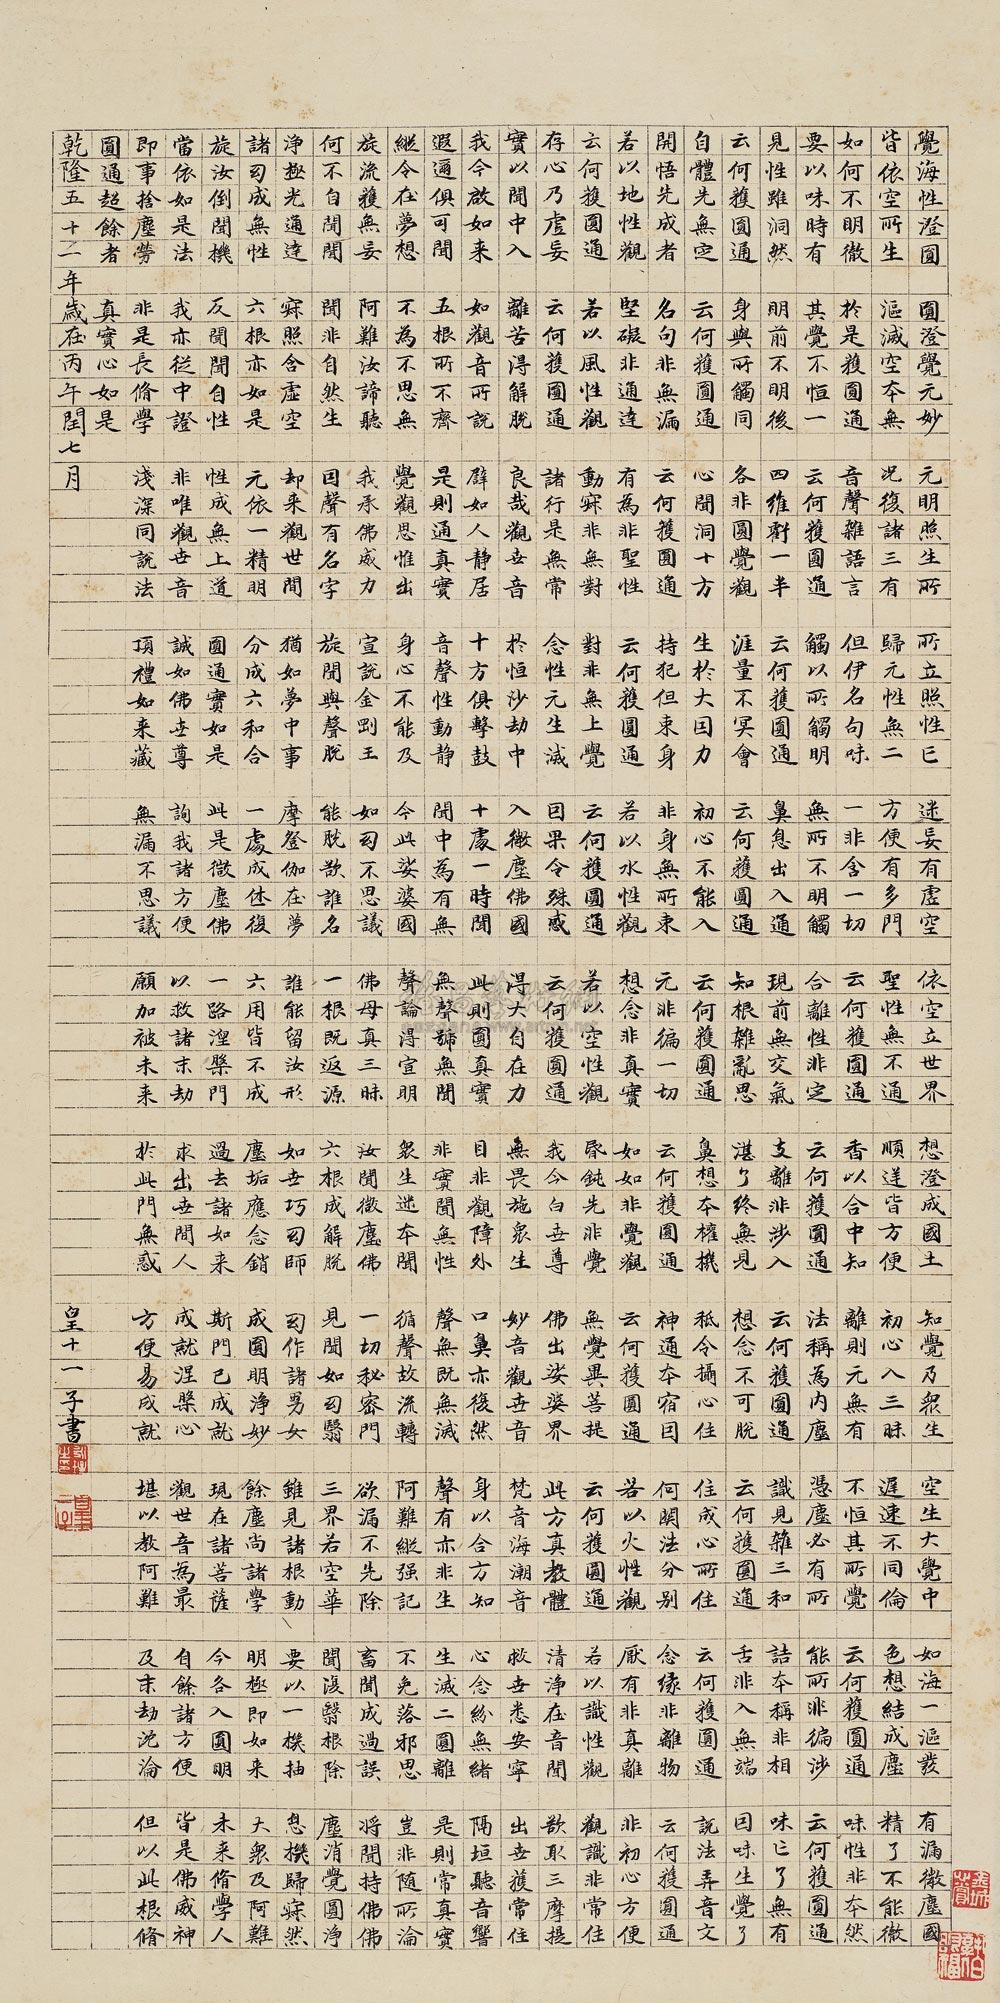 覺海性澄圓 圓澄覺元妙 元明照生所 所立照性亡 迷妄有虛空 依空立世界 想澄成國土 知覺乃衆生 空生大覺中 如海一漚發 有漏微塵國
皆依空所生 漚滅空本無 況復諸三有 歸元性無二 方便有多門 聖性無不通 順逆皆方便 初心入三昧 遲速不同倫 色想結成塵 精了不能徹
如何不明徹 於是獲圓通 音聲雜語言 但伊名句味 一非含一切 云何獲圓通 香以合中知 離則元無有 不恒其所覺 云何獲圓通 味性非本然
要以味時有 其覺不恒一 云何獲圓通 觸以所觸明 無所不明觸 合離性非定 云何獲圓通 法稱為內塵 憑塵必有所 能所非徧涉 云何獲圓通
見性雖洞然 明前不明後 四維虧一半 云何獲圓通 鼻息出入通 現前無交氣 支離非涉入 云何獲圓通 識見雜三和 詰本稱非相 味亡了無有
云何獲圓通 身與所觸同 各非圓覺觀 涯量不冥會 云何獲圓通 知根雜亂思 湛了終無見 想念不可脫 云何獲圓通 舌非入無端 因味生覺了
自體先無定 云何獲圓通 心聞洞十方 生於大因力 初心不能入 云何獲圓通 鼻想本權機 秪令攝心住 住成心所住 云何獲圓通 說法弄音文
開悟先成者 名句非無漏 云何獲圓通 持犯但束身 非身無所束 元非徧一切 云何獲圓通 神通本宿因 何關法分別 念緣非離物 云何獲圓通
若以地性觀 堅礙非通達 有為非聖性 云何獲圓通 若以水性觀 想念非真實 如如非覺觀 云何獲圓通 若以火性觀 厭有非真離 非初心方便
云何獲圓通 若以風性觀 動寂非無對 對非無上覺 云何獲圓通 若以空性觀 昏鈍先非覺 無覺異菩提 云何獲圓通 若以識性觀 觀識非常住
存心乃虛妄 云何獲圓通 諸行是無常 念性元生滅 因果今殊感 云何獲圓通 我今白世尊 佛出娑婆界 此方真教體 清淨在音聞 欲取三摩提
實以聞中入 離苦得解脫 良哉觀世音 於恒沙劫中 入微塵佛國 得大自在力 無畏施衆生 妙音觀世音 梵音海潮音 救世悉安寧 出世獲常住
我今啟如來 如觀音所說 譬如人靜居 十方俱擊鼓 十處一時聞 此則圓真實 目非觀障外 口鼻亦復然 身以合方知 心念紛無緒 隔垣聽音響
遐邇俱可聞 五根所不齊 是則通真實 音聲性動靜 聞中為有無 無聲號無聞 非實聞無性 聲無既無滅 聲有亦非生 生滅二圓離 是則常真實
縱令在夢想 不為不思無 覺觀思惟出 身心不能及 今此娑婆國 聲論得宣明 衆生迷本聞 循聲故流轉 阿難縱強記 不免落邪思 豈非隨所淪
旋流獲無妄 阿難汝諦聽 我承佛威力 宣說金剛王 如幻不思議 佛母真三昧 汝聞微塵佛 一切秘密門 欲漏不先除 畜聞成過誤 將聞持佛佛
何不自聞聞 聞非自然生 因聲有名字 旋聞與聲脫 能脫欲誰名 一根既返源 六根成解脫 見聞如幻翳 三界若空華 聞復翳根除 塵消覺圓淨
淨極光通達 寂照含虛空 却來觀世間 猶如夢中事 摩登伽在夢 誰能留汝形 如世巧幻師 幻作諸男女 雖見諸根動 要以一機抽 息機歸寂然
諸幻成無性 六根亦如是 元依一精明 分成六和合 一處成休復 六用皆不成 塵垢應念銷 成圓明淨妙 餘塵尚諸學 明極即如來 大衆及阿難
旋汝倒聞機 反聞聞自性 性成無上道 圓通實如是 此是微塵佛 一路涅槃門 過去諸如來 斯門已成就 現在諸菩薩 今各入圓明 未來脩學人
當依如是法 我亦從中證 非唯觀世音 誠如佛世尊 詢我諸方便 以救諸末劫 求出世間人 成就涅槃心 觀世音為最 自餘諸方便 皆是佛威神
即事捨塵勞 非是長脩學 淺深同說法 頂禮如來藏 無漏不思議 願加被未來 於此門無惑 方便易成就 堪以教阿難 及末劫沈淪 但以此根脩
圓通超餘者 真實心如是
乾隆五十二年歲在丙午閏七月 皇十一子書